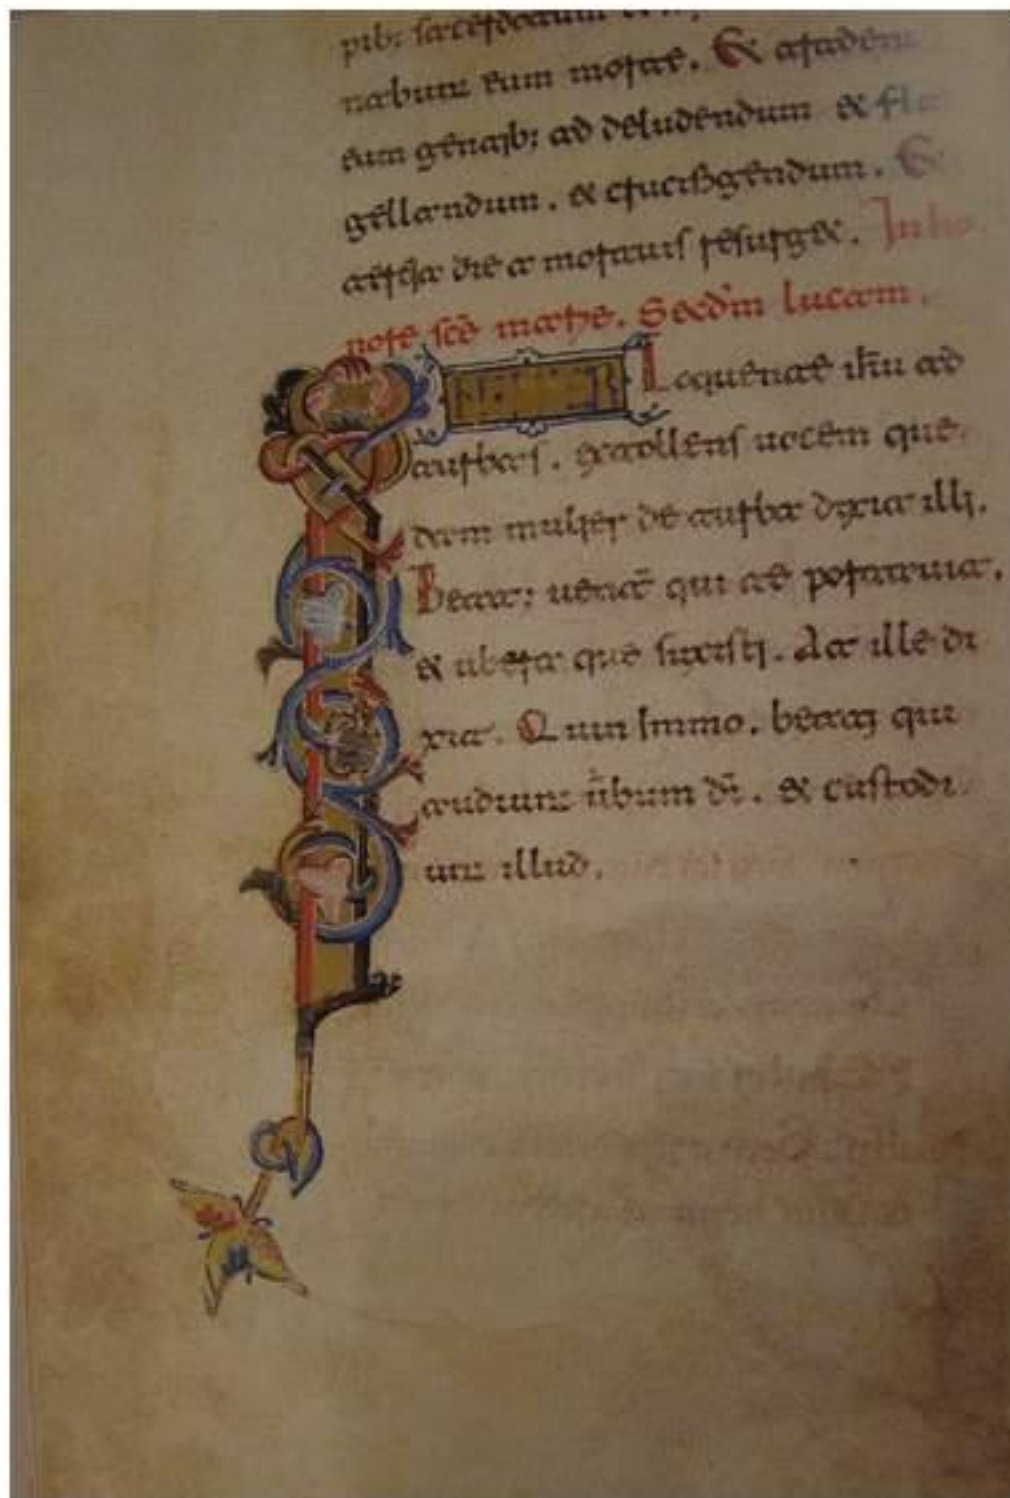 pib; sacerdotum et
nabunt eum morte. Et tradent
eum gentib; ad deludendum & fla
gellandum. & crucifigendum. Et
tertia die a mortuis resurget. In ho
nore scē marie. Secd'm lucam.
Loquente ih̄u ad
turbas. extollens uocem que
dam mulier de turba dixit illi.
Beat; uent̄ qui te portauit.
& ubera que suxisti. At ille di
xit. Quin immo. beati qui
audiunt ūbum dī. & custodi
unt illud.